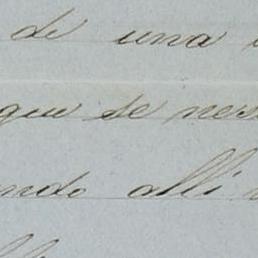 de una
que se nes
ndo alli